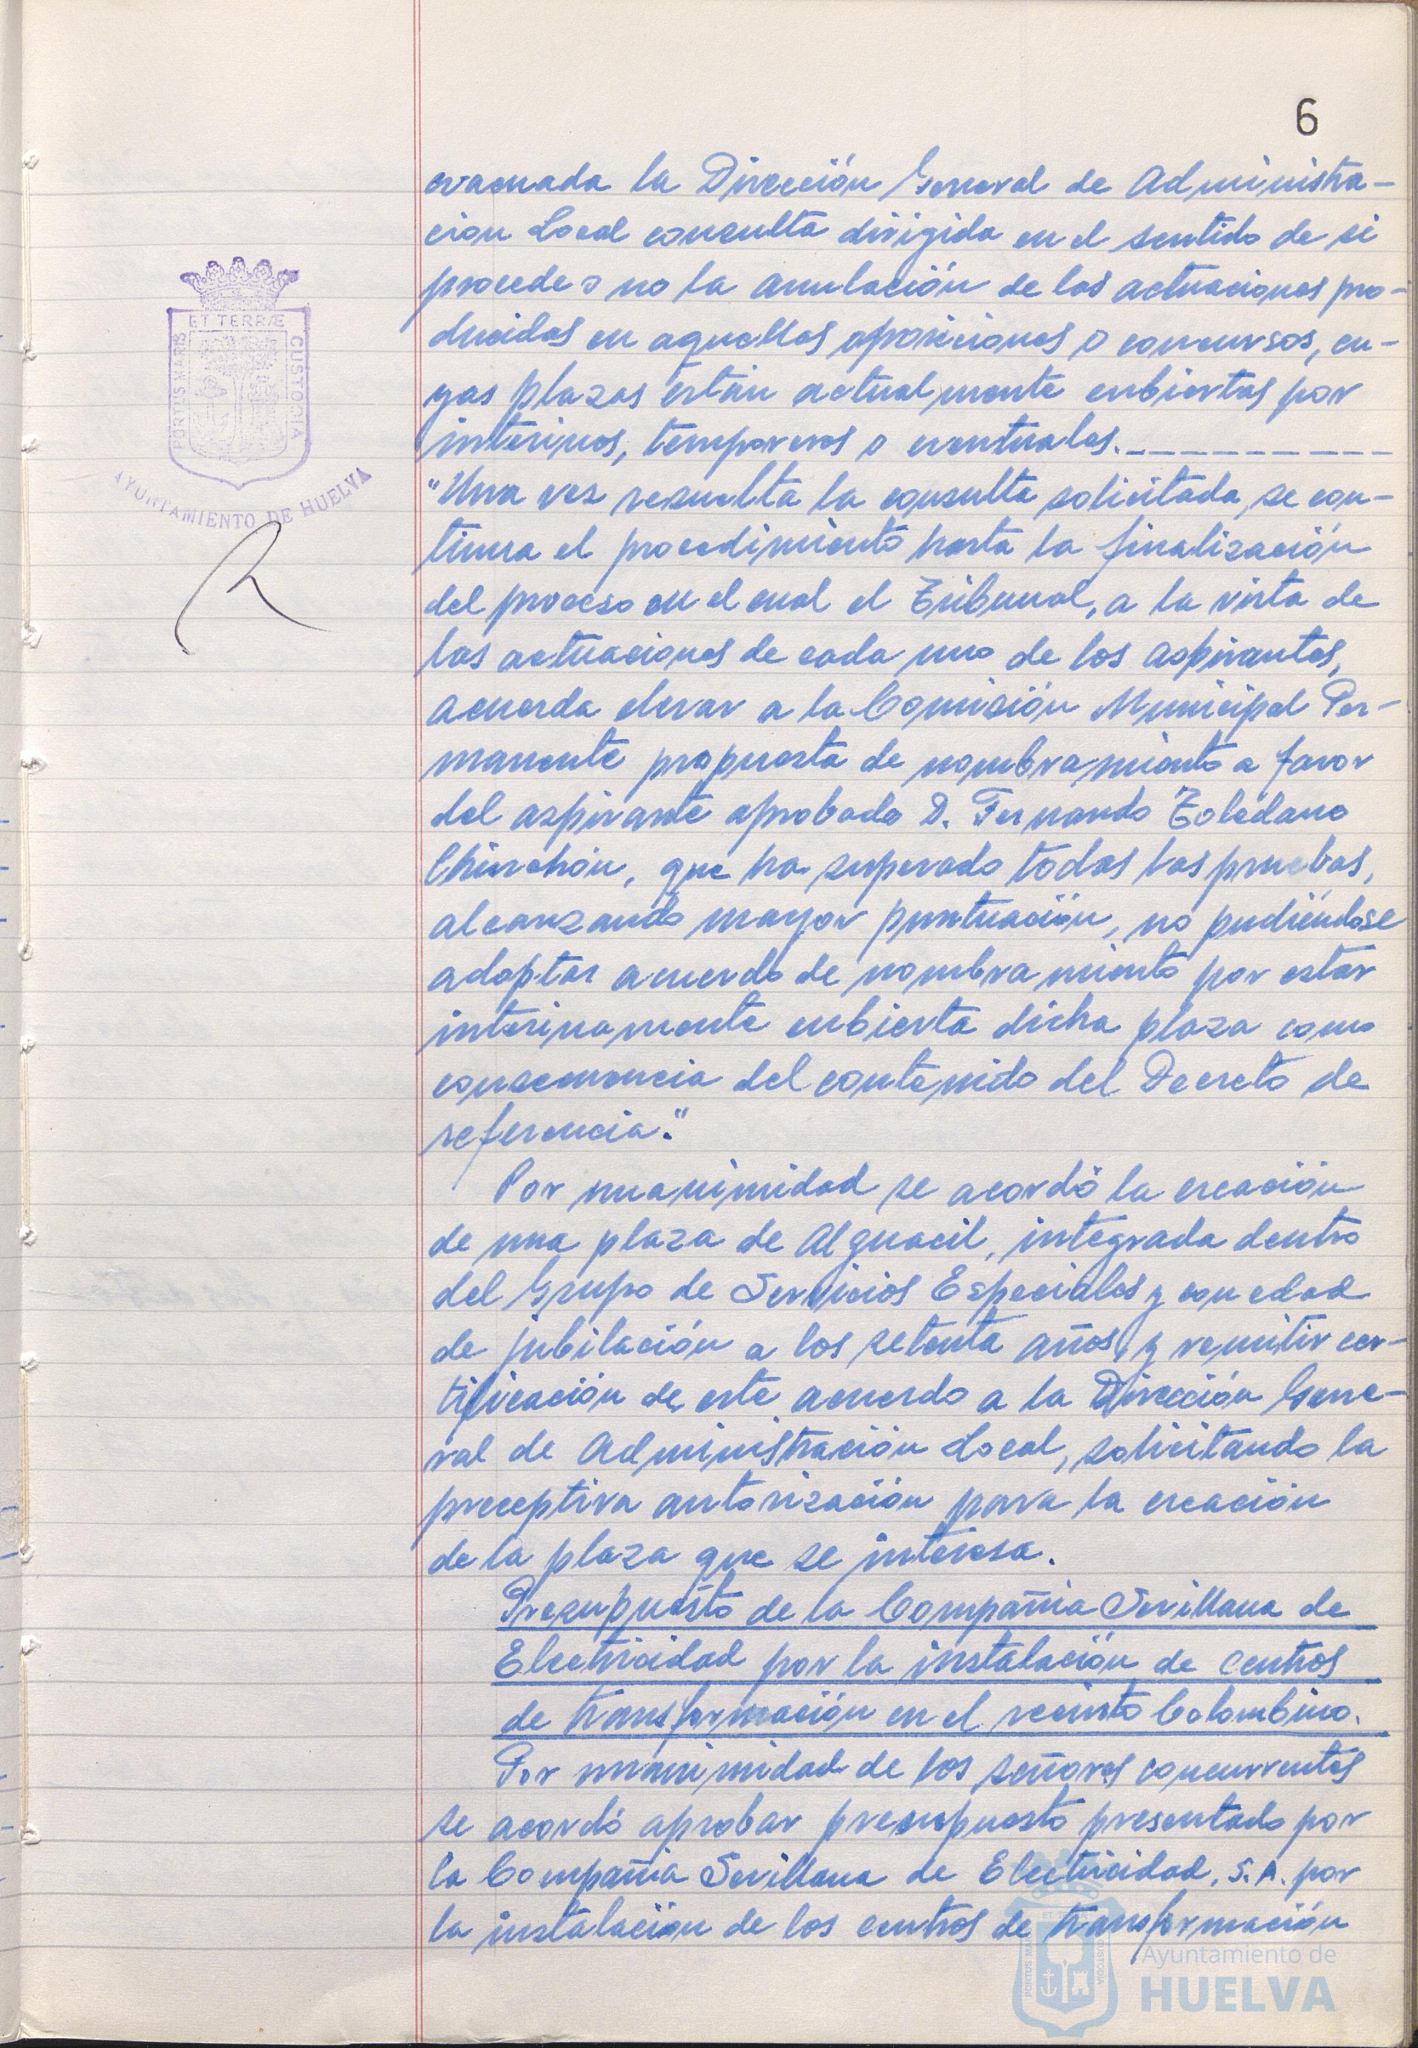 6
evacuada la Dirección General de Administra-
ción Local consulta dirigida en el sentido de si
procede o no la anulación de las actuaciones pro-
ducidas en aquellas oposiciones o concursos, cu-
yas plazas están actualmente cubiertas por
interinos, temporeros o eventuales.
"Una vez resuelta la consulta solicitada, se con-
tinua el procedimiento hasta la finalización
del proceso en el cual el Tribunal, a la vista de
las actuaciones de cada uno de los aspirantes,
acuerda elevar a la Comisión Municipal Per-
manente propuesta de nombramiento a favor
del aspirante aprobado D. Fernando Toledano
Chinchón, que ha superado todas las pruebas,
alcanzando mayor puntuación, no pudiéndose
adoptar acuerdo de nombramiento por estar
interinamente cubierta dicha plaza como
consecuencia del contenido del Decreto de
referencia."
Por unanimidad se acordó la creación
de una plaza de Alguacil, integrada dentro
del Grupo de Servicios Especiales y con edad
de jubilación a los setenta años, y remitir cer-
tificación de este acuerdo a la Dirección Gene-
ral de Administración Local, solicitando la
preceptiva autorización para la creación
de la plaza que se interesa.
Presupuesto de la Compañia Sevillana de
Electricidad por la instalación de centros
de transformación en el recinto Colombino.
Por unanimidad de los señores concurrentes
se acordó aprobar presupuesto presentado por
la Compañia Sevillana de Electricidad, S.A. por
la instalación de los centros de transformación
PORTUS MARIS
ET TERRÆ
CUSTODIA
AYUNTAMIENTO DE HUELVA
PORTUS MARIS
ET TERRÆ
CUSTODIA
Ayuntamiento de
HUELVA